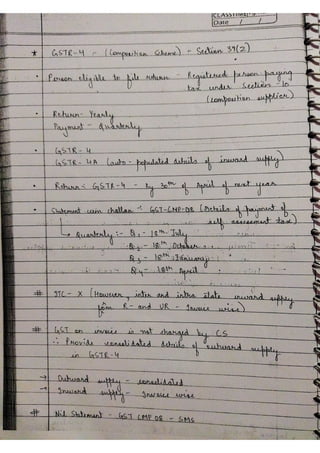 CLASSTIME
Date / /
* GSTR-4 - (Composition Scheme) - Section 39(2)
• Person eligible to file return - Registered person paying
tax under Section - 10
(composition supplier)
• Return - Yearly
Payment - Quarterly
• GSTR - 4
GSTR - 4A (auto - populated details of inward supply)
• Return - GSTR-4 - by 30th of April of next year
• Statement cum challan - GST-CMP-08 (Details of payment of
self assessment tax)
↳ Quarterly :- Q1 - 18th July
Q2 - 18th October
Q3 - 18th January
Q4 - 18th April
# ITC - X (However, inter and intra state inward supply
from R- and UR - Invoice wise)
# GST on invoice is not charged by CS
∴ Provide consolidated details of outward supply
in GSTR-4
→ Outward supply - consolidated
→ Inward supply - Invoice wise
# Nil Statement - GST CMP 08 - SMS